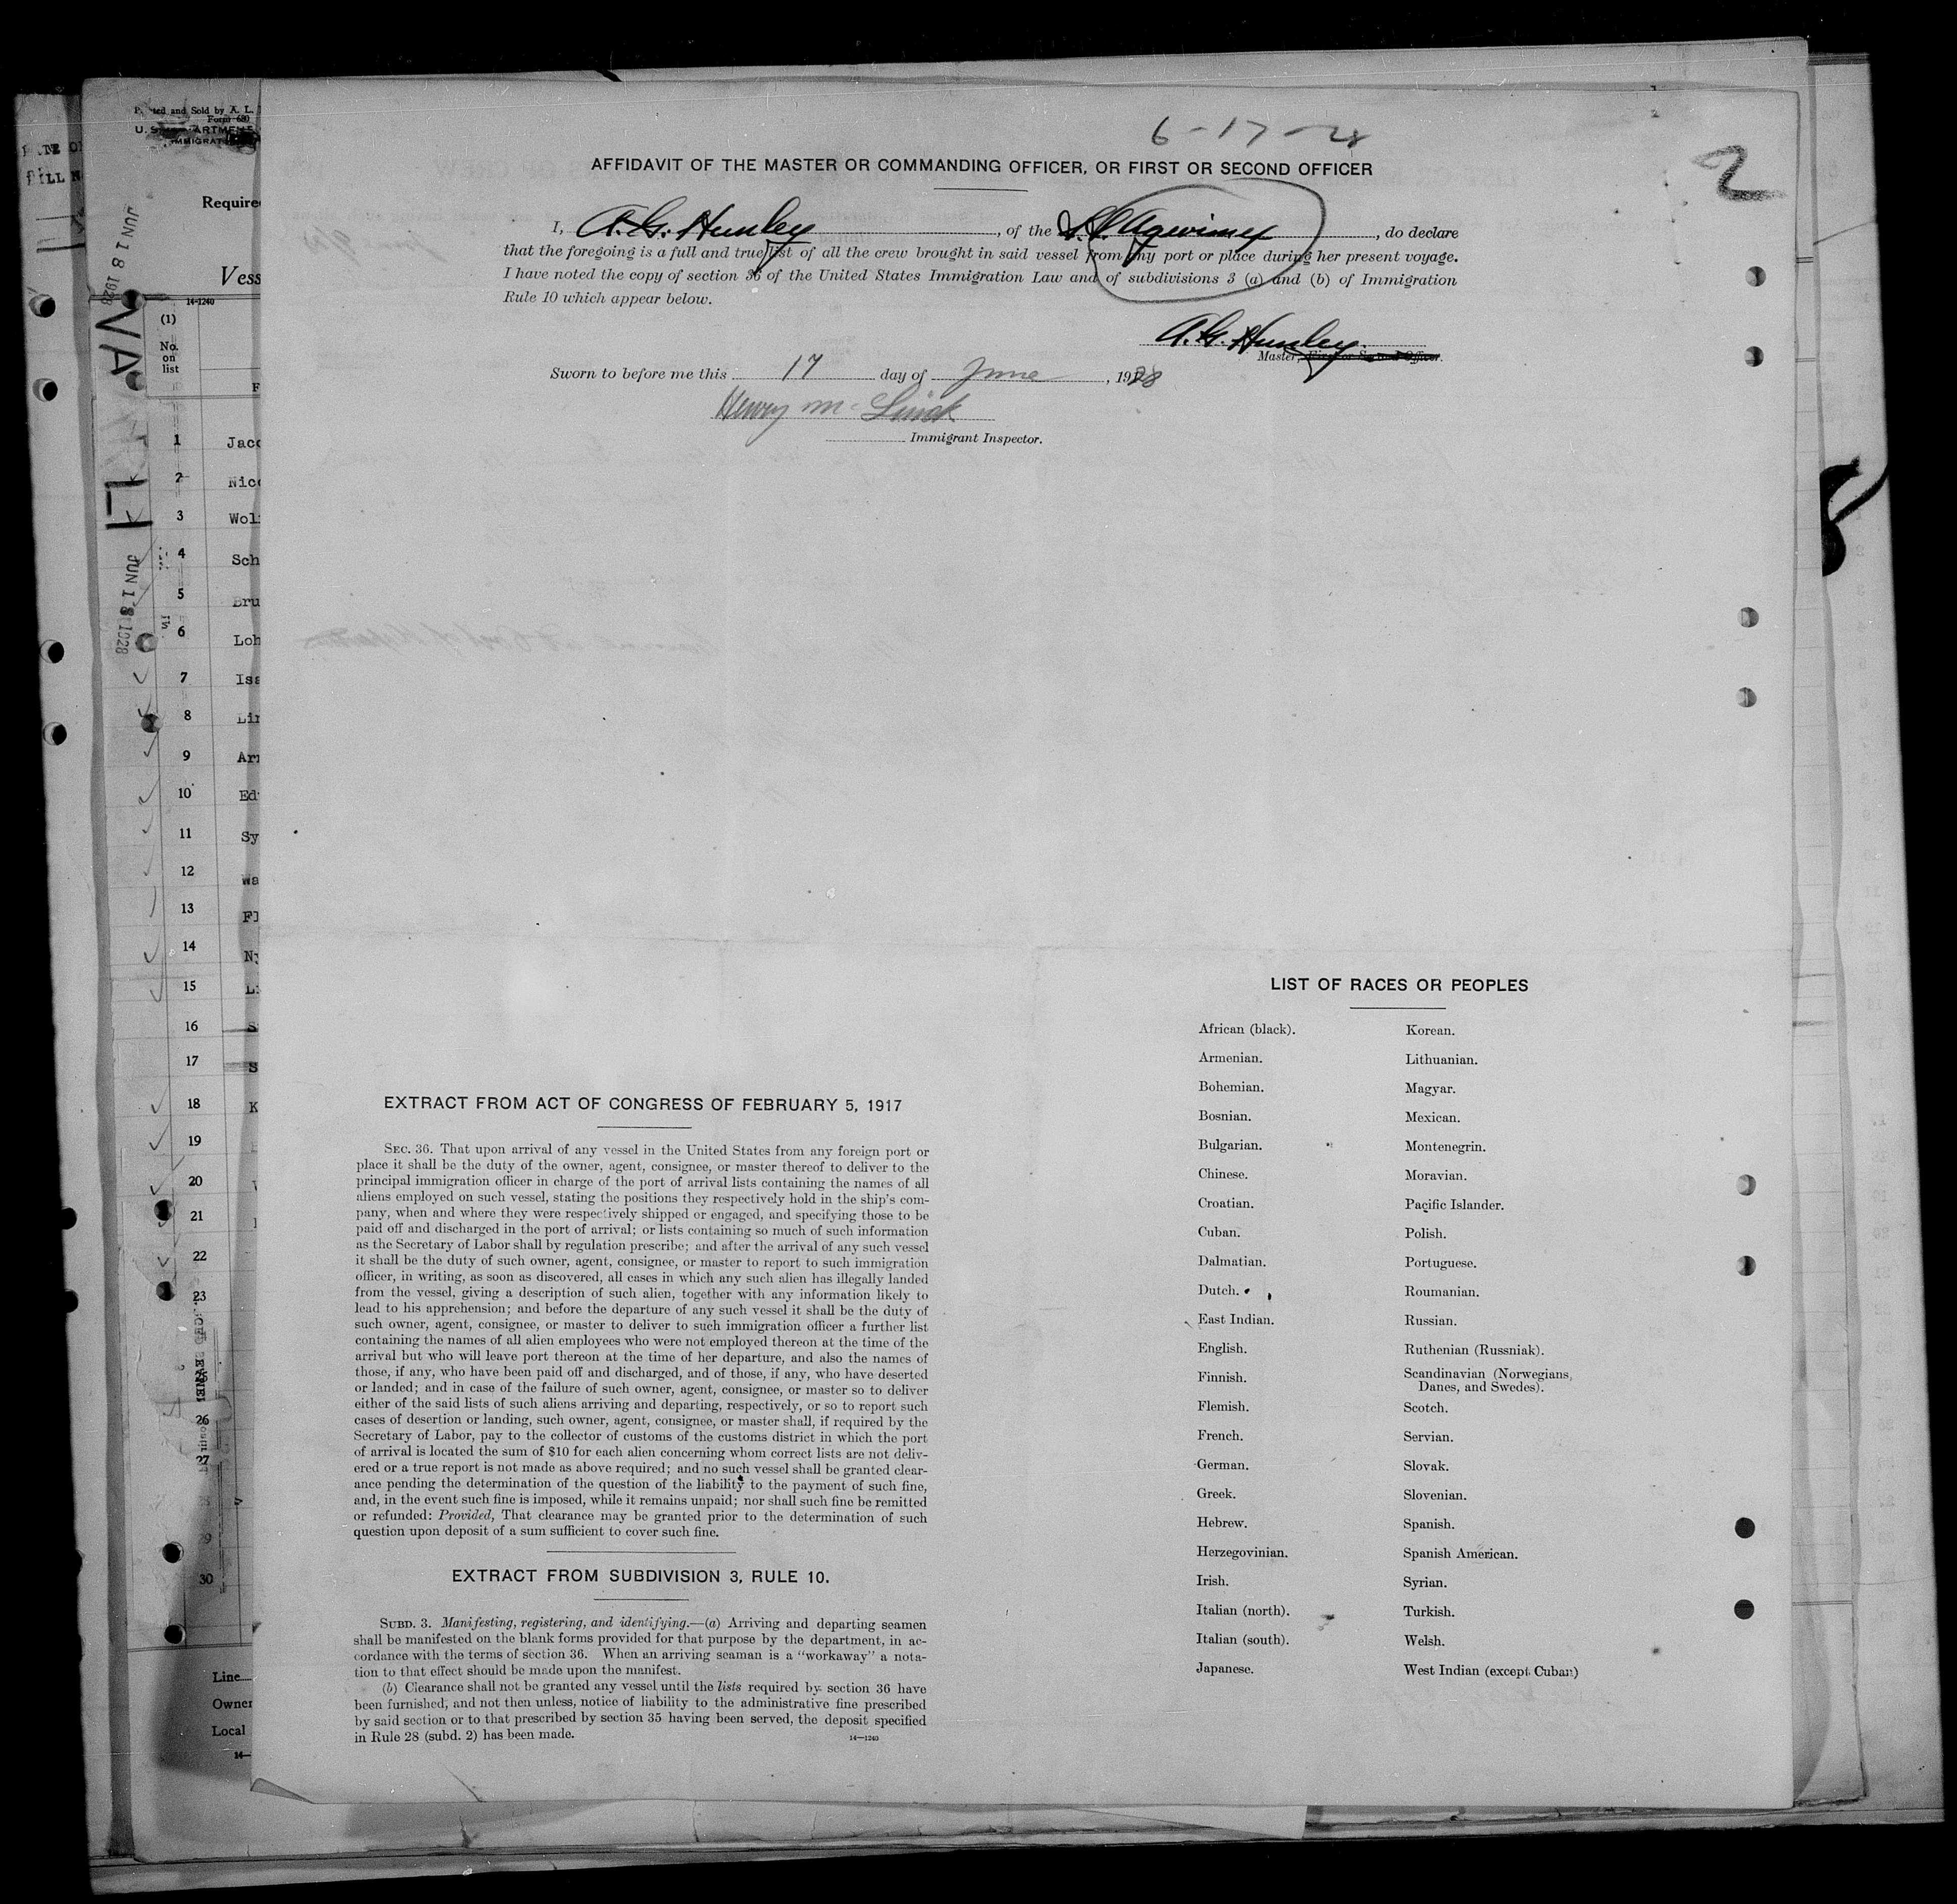 6-17-28
2
AFFIDAVIT OF THE MASTER OR COMMANDING OFFICER, OR FIRST OR SECOND OFFICER
I, A. G. Hunley, of the S.S. Agwimex, do declare
that the foregoing is a full and true list of all the crew brought in said vessel from any port or place during her present voyage.
I have noted the copy of section 36 of the United States Immigration Law and of subdivisions 3 (a) and (b) of Immigration
Rule 10 which appear below.
A. G. Hunley
Master, First or Second Officer.
Sworn to before me this 17 day of June, 1928
Henry
Immigrant Inspector.
EXTRACT FROM ACT OF CONGRESS OF FEBRUARY 5, 1917
SEC. 36. That upon arrival of any vessel in the United States from any foreign port or
place it shall be the duty of the owner, agent, consignee, or master thereof to deliver to the
principal immigration officer in charge of the port of arrival lists containing the names of all
aliens employed on such vessel, stating the positions they respectively hold in the ship's com-
pany, when and where they were respectively shipped or engaged, and specifying those to be
paid off and discharged in the port of arrival; or lists containing so much of such information
as the Secretary of Labor shall by regulation prescribe; and after the arrival of any such vessel
it shall be the duty of such owner, agent, consignee, or master to report to such immigration
officer, in writing, as soon as discovered, all cases in which any such alien has illegally landed
from the vessel, giving a description of such alien, together with any information likely to
lead to his apprehension; and before the departure of any such vessel it shall be the duty of
such owner, agent, consignee, or master to deliver to such immigration officer a further list
containing the names of all alien employees who were not employed thereon at the time of the
arrival but who will leave port thereon at the time of her departure, and also the names of
those, if any, who have been paid off and discharged, and of those, if any, who have deserted
or landed; and in case of the failure of such owner, agent, consignee, or master so to deliver
either of the said lists of such aliens arriving and departing, respectively, or so to report such
cases of desertion or landing, such owner, agent, consignee, or master shall, if required by the
Secretary of Labor, pay to the collector of customs of the customs district in which the port
of arrival is located the sum of $10 for each alien concerning whom correct lists are not deliv-
ered or a true report is not made as above required; and no such vessel shall be granted clear-
ance pending the determination of the question of the liability to the payment of such fine,
and, in the event such fine is imposed, while it remains unpaid; nor shall such fine be remitted
or refunded: Provided, That clearance may be granted prior to the determination of such
question upon deposit of a sum sufficient to cover such fine.
EXTRACT FROM SUBDIVISION 3, RULE 10.
SUBD. 3. Manifesting, registering, and identifying.—(a) Arriving and departing seamen
shall be manifested on the blank forms provided for that purpose by the department, in ac-
cordance with the terms of section 36. When an arriving seaman is a "workaway" a nota-
tion to that effect should be made upon the manifest.
(b) Clearance shall not be granted any vessel until the lists required by section 36 have
been furnished, and not then unless, notice of liability to the administrative fine prescribed
by said section or to that prescribed by section 35 having been served, the deposit specified
in Rule 28 (subd. 2) has been made.
14—1240
LIST OF RACES OR PEOPLES
African (black). Korean.
Armenian. Lithuanian.
Bohemian. Magyar.
Bosnian. Mexican.
Bulgarian. Montenegrin.
Chinese. Moravian.
Croatian. Pacific Islander.
Cuban. Polish.
Dalmatian. Portuguese.
Dutch. Roumanian.
East Indian. Russian.
English. Ruthenian (Russniak).
Finnish. Scandinavian (Norwegians,
Danes, and Swedes).
Flemish. Scotch.
French. Servian.
German. Slovak.
Greek. Slovenian.
Hebrew. Spanish.
Herzegovinian. Spanish American.
Irish. Syrian.
Italian (north). Turkish.
Italian (south). Welsh.
Japanese. West Indian (except Cuban)
Form 680
Vess
14-1240
(1)
No.
on
list
JUN 18 1928
JUN 18 1928
1 Jaco
2 Nico
3
4 Sch
5 Bru
6 Loh
7 Isa
8
9
10 Ed
11 Sy
12 Wa
13
14
15
16
17
18 K
19
20
21
22
23
26
27
30
Line
Owner
Local